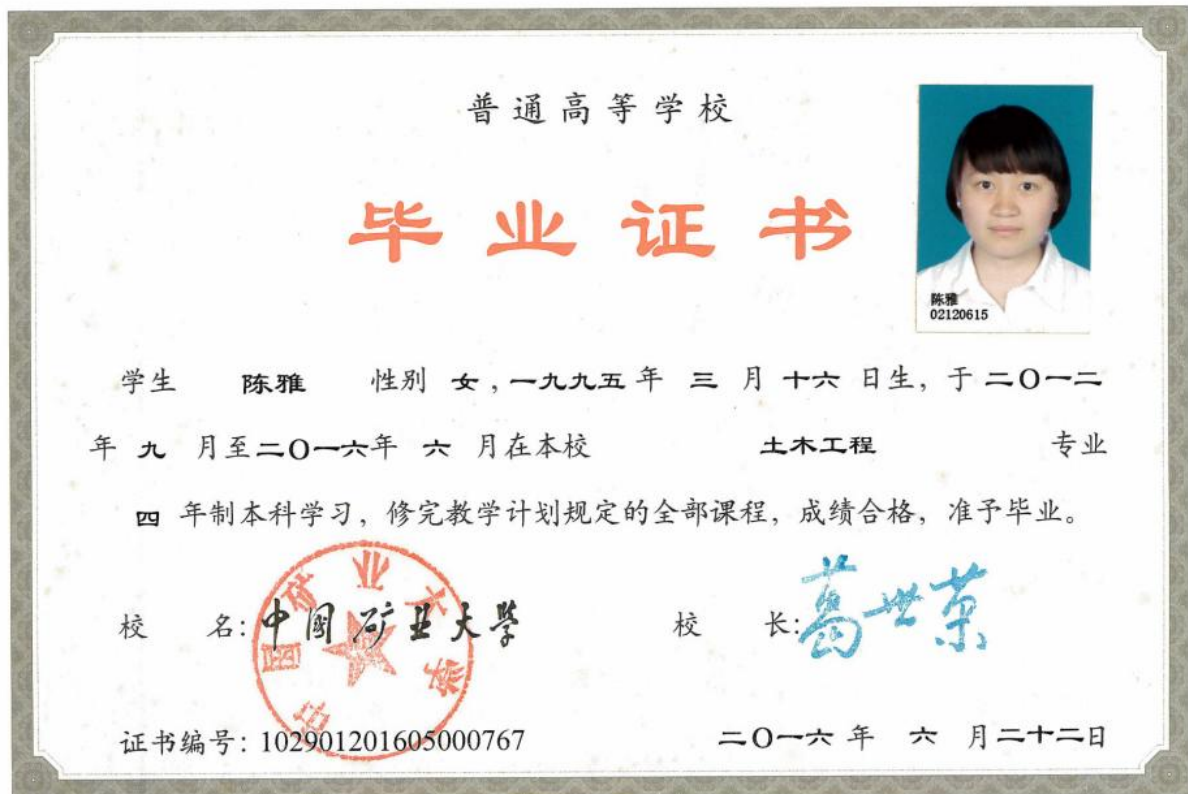 普通高等学校
毕业证书
陈雅
02120615
学生 陈雅 性别 女,一九九五年 三 月 十六 日生, 于 二〇一二
年 九 月至二〇一六年 六 月在本校 土木工程 专业
四 年制本科学习, 修完教学计划规定的全部课程, 成绩合格, 准予毕业。
校 名: 中国矿业大学 校 长: 葛世荣
中国矿业大学
证书编号: 102901201605000767 二〇一六 年 六 月二十二日